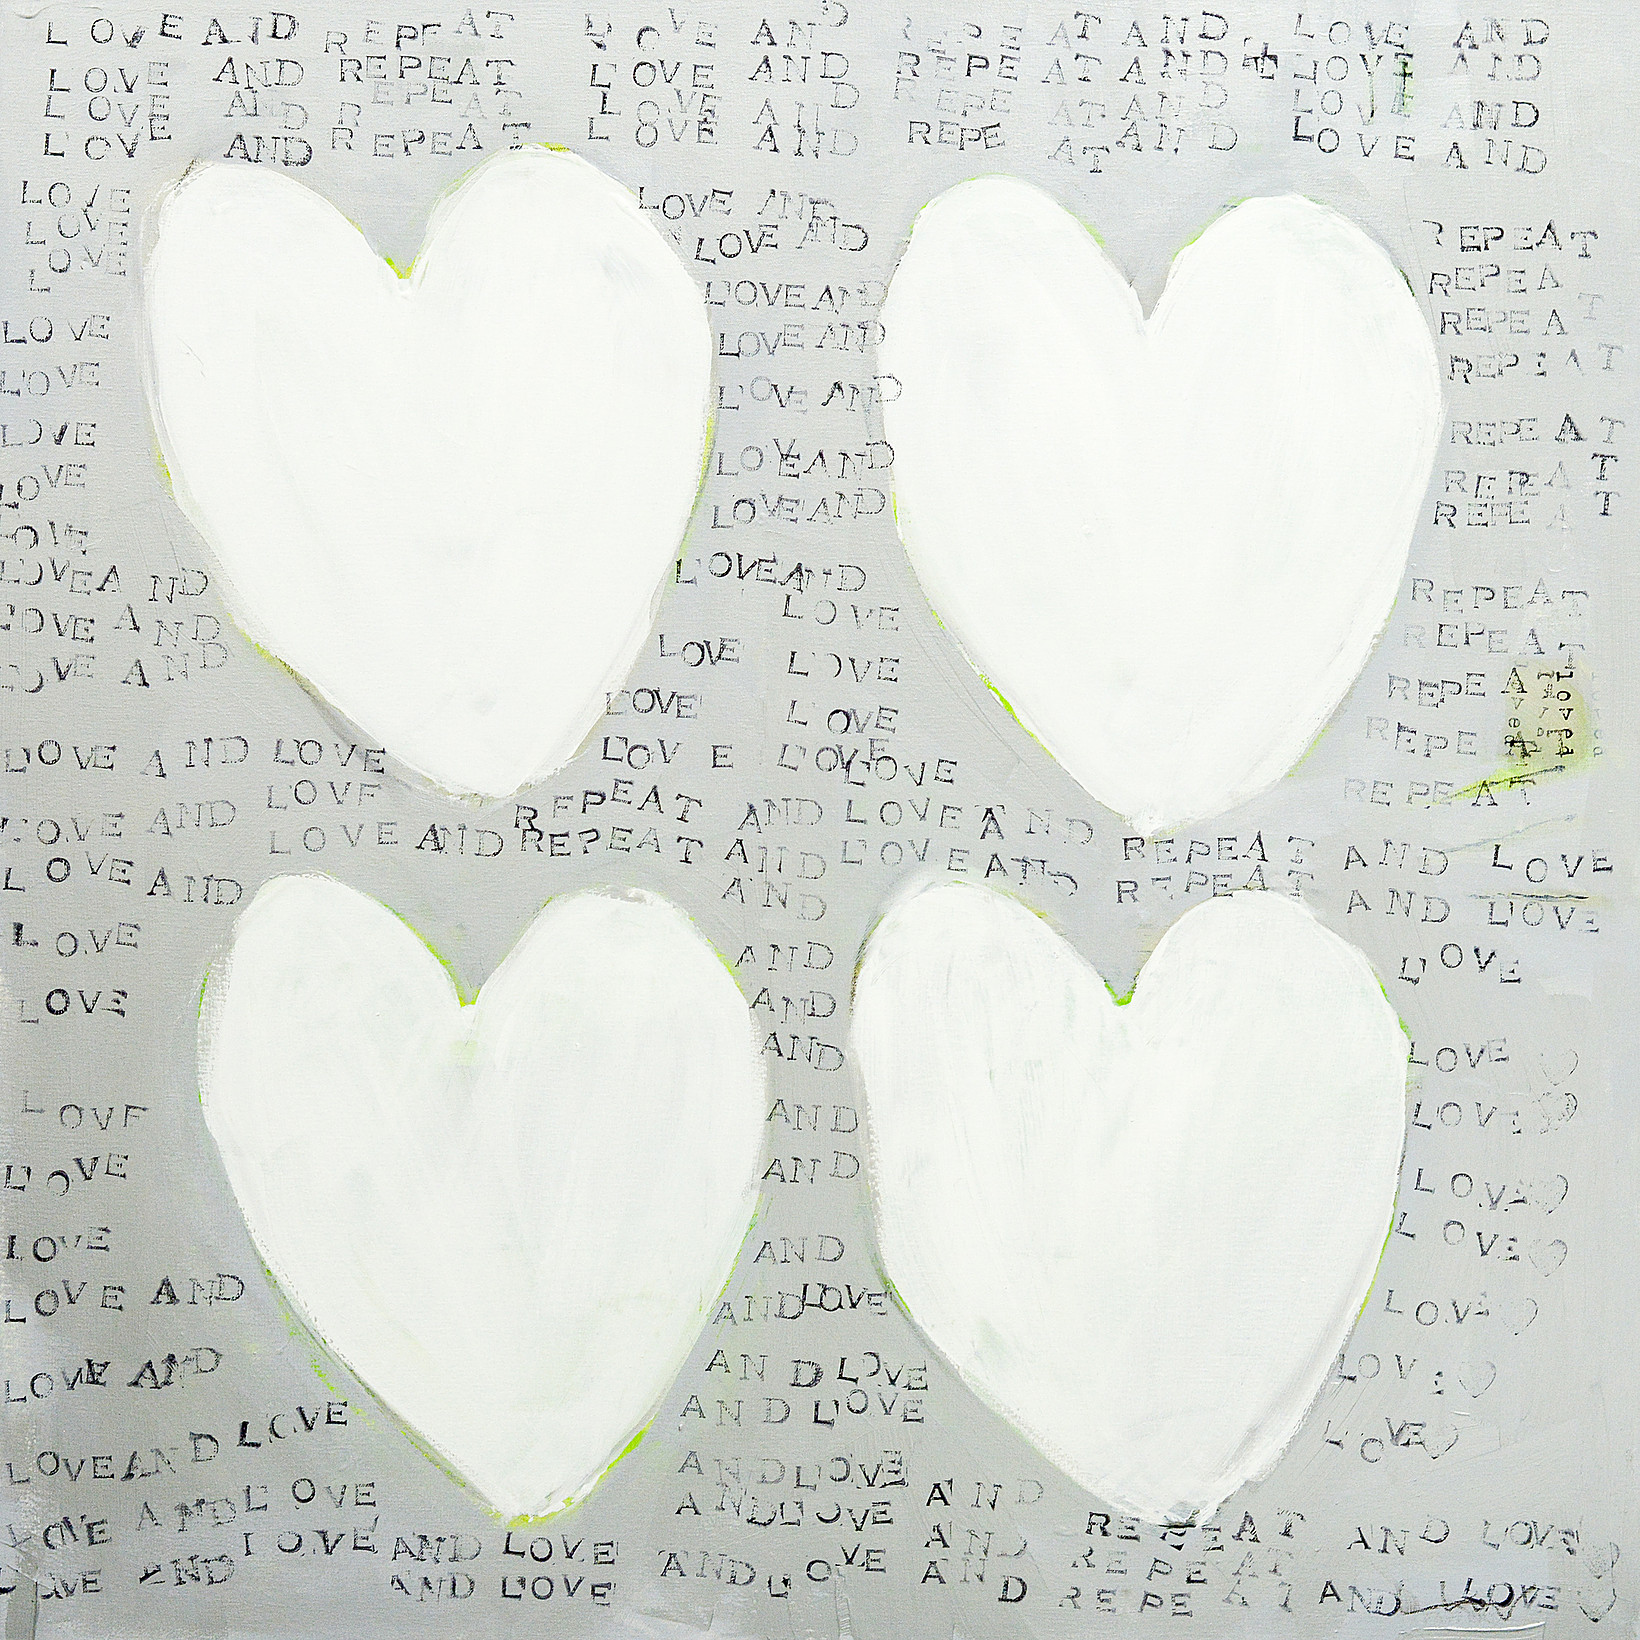 LOVE AND REPEAT LOVE AND REPEAT AND LOVE AND
LOVE AND REPEAT LOVE AND REPEAT AND LOVE AND
LOVE AND REPEAT LOVE AND REPEAT AND LOVE AND
LOVE AND REPEAT LOVE AND REPEAT AND LOVE AND
LOVE LOVE AND
LOVE LOVE AND REPEAT
LOVE LOVE AND REPEAT
LOVE LOVE AND REPEAT
LOVE LOVE AND REPEAT
LOVE LOVE AND REPEAT
LOVE LOVE AND REPEAT
LOVE LOVE AND REPEAT
LOVE AND LOVE REPEAT
LOVE AND LOVE LOVE REPEAT
LOVE AND LOVE LOVE REPEAT
LOVE AND LOVE LOVE LOVE REPEAT
LOVE LOVE REPEAT
LOVE AND LOVE REPEAT AND LOVE AND REPEAT AND LOVE
LOVE AND LOVE AND REPEAT AND LOVE AND REPEAT AND LOVE
LOVE AND AND LOVE
LOVE AND
LOVE AND LOVE
AND LOVE
LOVE AND LOVE
LOVE AND LOVE
LOVE AND LOVE
LOVE AND AND LOVE LOVE
LOVE AND AND LOVE LOVE
AND LOVE LOVE
LOVE AND LOVE AND LOVE
LOVE AND LOVE AND LOVE AND REPEAT AND LOVE
LOVE AND LOVE AND LOVE AND LOVE AND REPEAT
AND LOVE AND REPEAT AND LOVE
loved